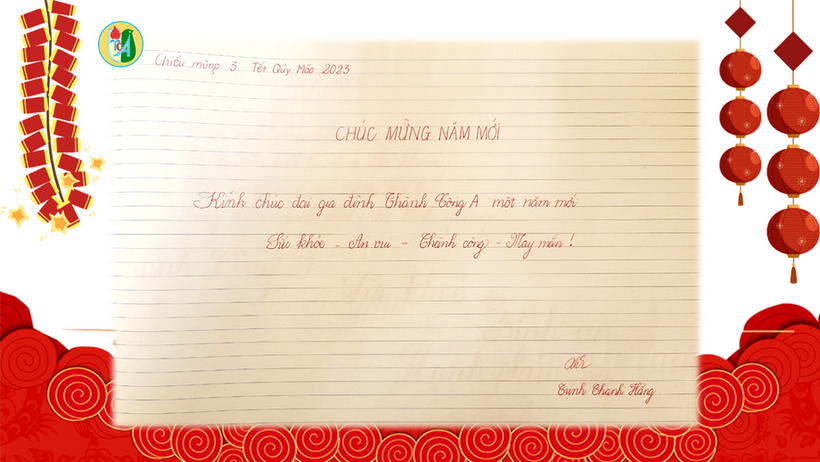 TCA
Chiều mùng 3 Tết Qúy Mão 2023
CHÚC MỪNG NĂM MỚI
Kính chúc đại gia đình Thành Công A một năm mới
Sức khỏe - An vui - Thành công - May mắn !
Trịnh Thanh Hằng